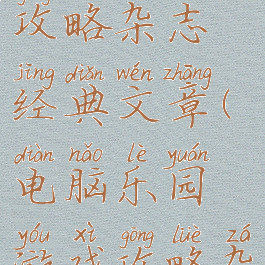 攻略杂志
jīng diǎn wén zhāng
经典文章(
diàn nǎo lè yuán
电脑乐园
yóu xì gōng lüè zá
游戏攻略杂